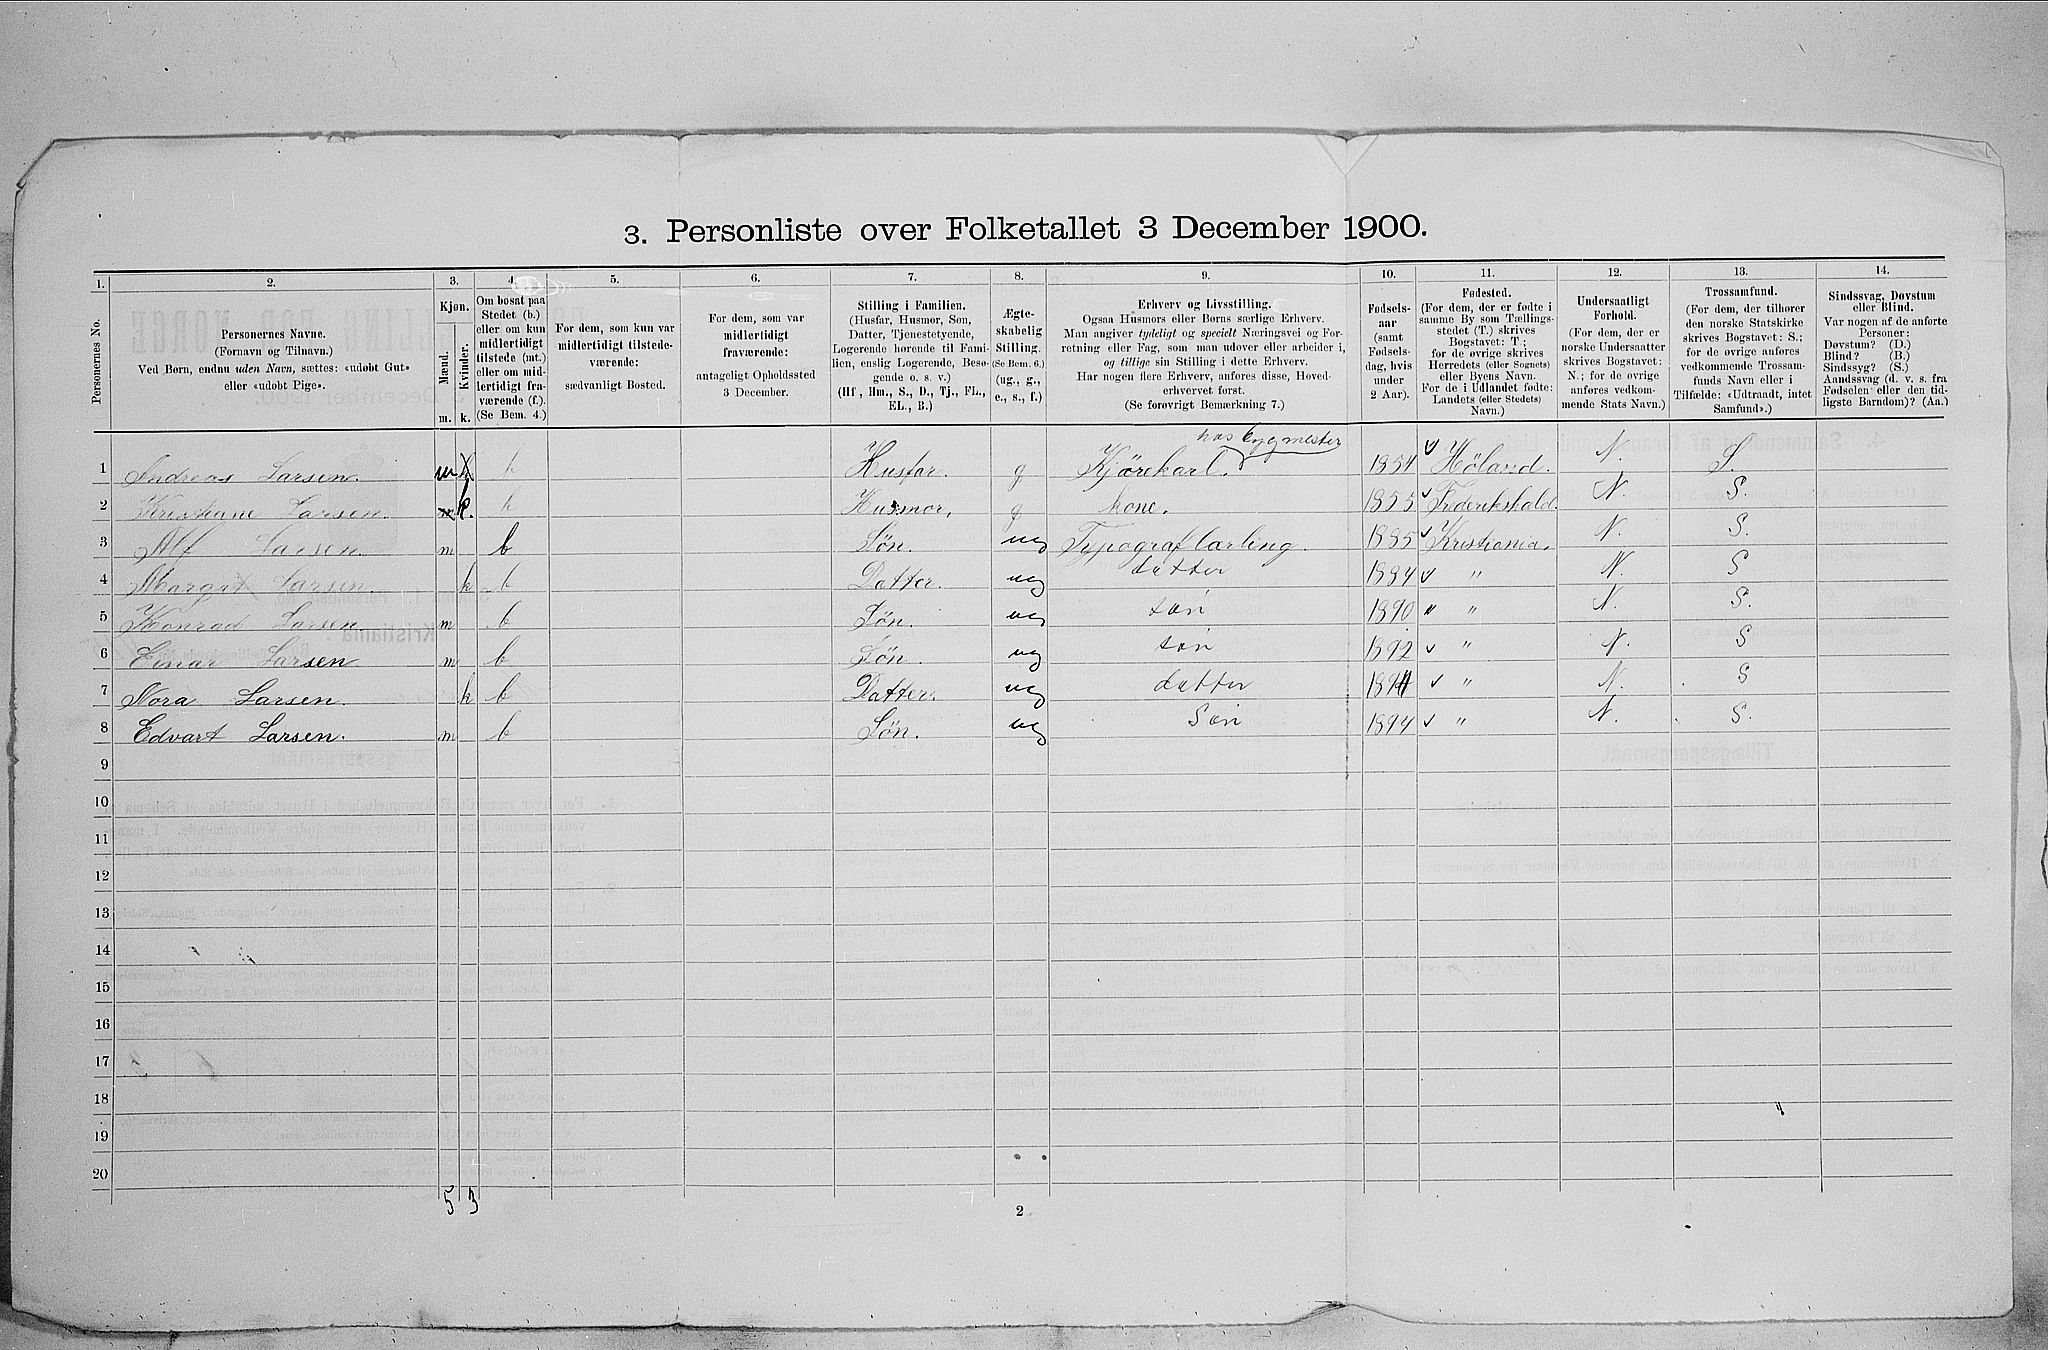 3. Personliste over Folketallet 3 December 1900.
1. 2. 3. 4. 5. 6. 7. 8. 9. 10. 11. 12. 13. 14.
Personernes No.
Personernes Navne.
(Fornavn og Tilnavn.)
Ved Børn, endnu uden Navn, sættes: «udøbt Gut»
eller «udøbt Pige».
Kjøn.
Mænd.
Kvinder.
m. k.
Om bosat paa
Stedet (b.)
eller om kun
midlertidigt
tilstede (mt.)
eller om mid-
lertidigt fra-
værende (f.)
(Se Bem. 4.)
For dem, som kun var
midlertidigt tilstede-
værende:
sædvanligt Bosted.
For dem, som var
midlertidigt
fraværende:
antageligt Opholdssted
3 December.
Stilling i Familien.
(Husfar, Husmor, Søn,
Datter, Tjenestetyende,
Logerende hørende til Fami-
lien, enslig Logerende, Besø-
gende o. s. v.)
(Hf., Hm., S., D., Tj., FL.,
EL., B.)
Ægte-
skabelig
Stilling.
(Se Bem. 6.)
(ug., g.,
e., s., f.)
Erhverv og Livsstilling.
Ogsaa Husmors eller Børns særlige Erhverv.
Man angiver tydeligt og specielt Næringsvei og For-
retning eller Fag, som man udøver eller arbeider i,
og tillige sin Stilling i dette Erhverv.
Har nogen flere Erhverv, anføres disse, Hoved-
erhvervet først.
(Se forøvrigt Bemærkning 7.)
Fødsels-
aar
(samt
Fødsels-
dag, hvis
under
2 Aar).
Fødested.
(For dem, der er fødte i
samme By som Tællings-
stedet (T.) skrives
Bogstavet: T;
for de øvrige skrives
Herredets (eller Sognets)
eller Byens Navn.
For de i Udlandet fødte:
Landets (eller Stedets)
Navn.)
Undersaatligt
Forhold.
(For dem, der er
norske Undersaatter
skrives Bogstavet:
N.; for de øvrige
anføres vedkom-
mende Stats Navn.)
Trossamfund.
(For dem, der tilhører
den norske Statskirke
skrives Bogstavet: S.;
for de øvrige anføres
vedkommende Trossam-
funds Navn eller i
Tilfælde: «Udtraadt, intet
Samfund».)
Sindssvag, Døvstum
eller Blind.
Var nogen af de anførte
Personer:
Døvstum? (D.)
Blind? (B.)
Sindssyg? (S.)
Aandssvag (d. v. s. fra
Fødselen eller den tid-
ligste Barndom)? (Aa.)
hos bygmester
1 Andreas Larsen. m b Husfar. g Kjørekarl. 1854 Høland. N. S.
2 Kristiane Larsen. k. b Husmor, g kone. 1855 Frederikshald. N. S.
3 Alf Larsen m b Søn. ug Typograf lærling. 1885 Kristiania. N. S.
4 Margit Larsen. k b Datter. ug datter 1884 " N. S
5 Konrad Larsen. m b Søn. ug søn 1890 " " N. S.
6 Einar Larsen m b Søn. ug søn 1892 " N. S
7 Nora Larsen. k b Datter. ug datter 1891 " N. S
8 Edvart Larsen. m b Søn. ug Søn 1894 " N. S.
9
10
11
12
13
14
15
16
17
18
19
20
5 3
2